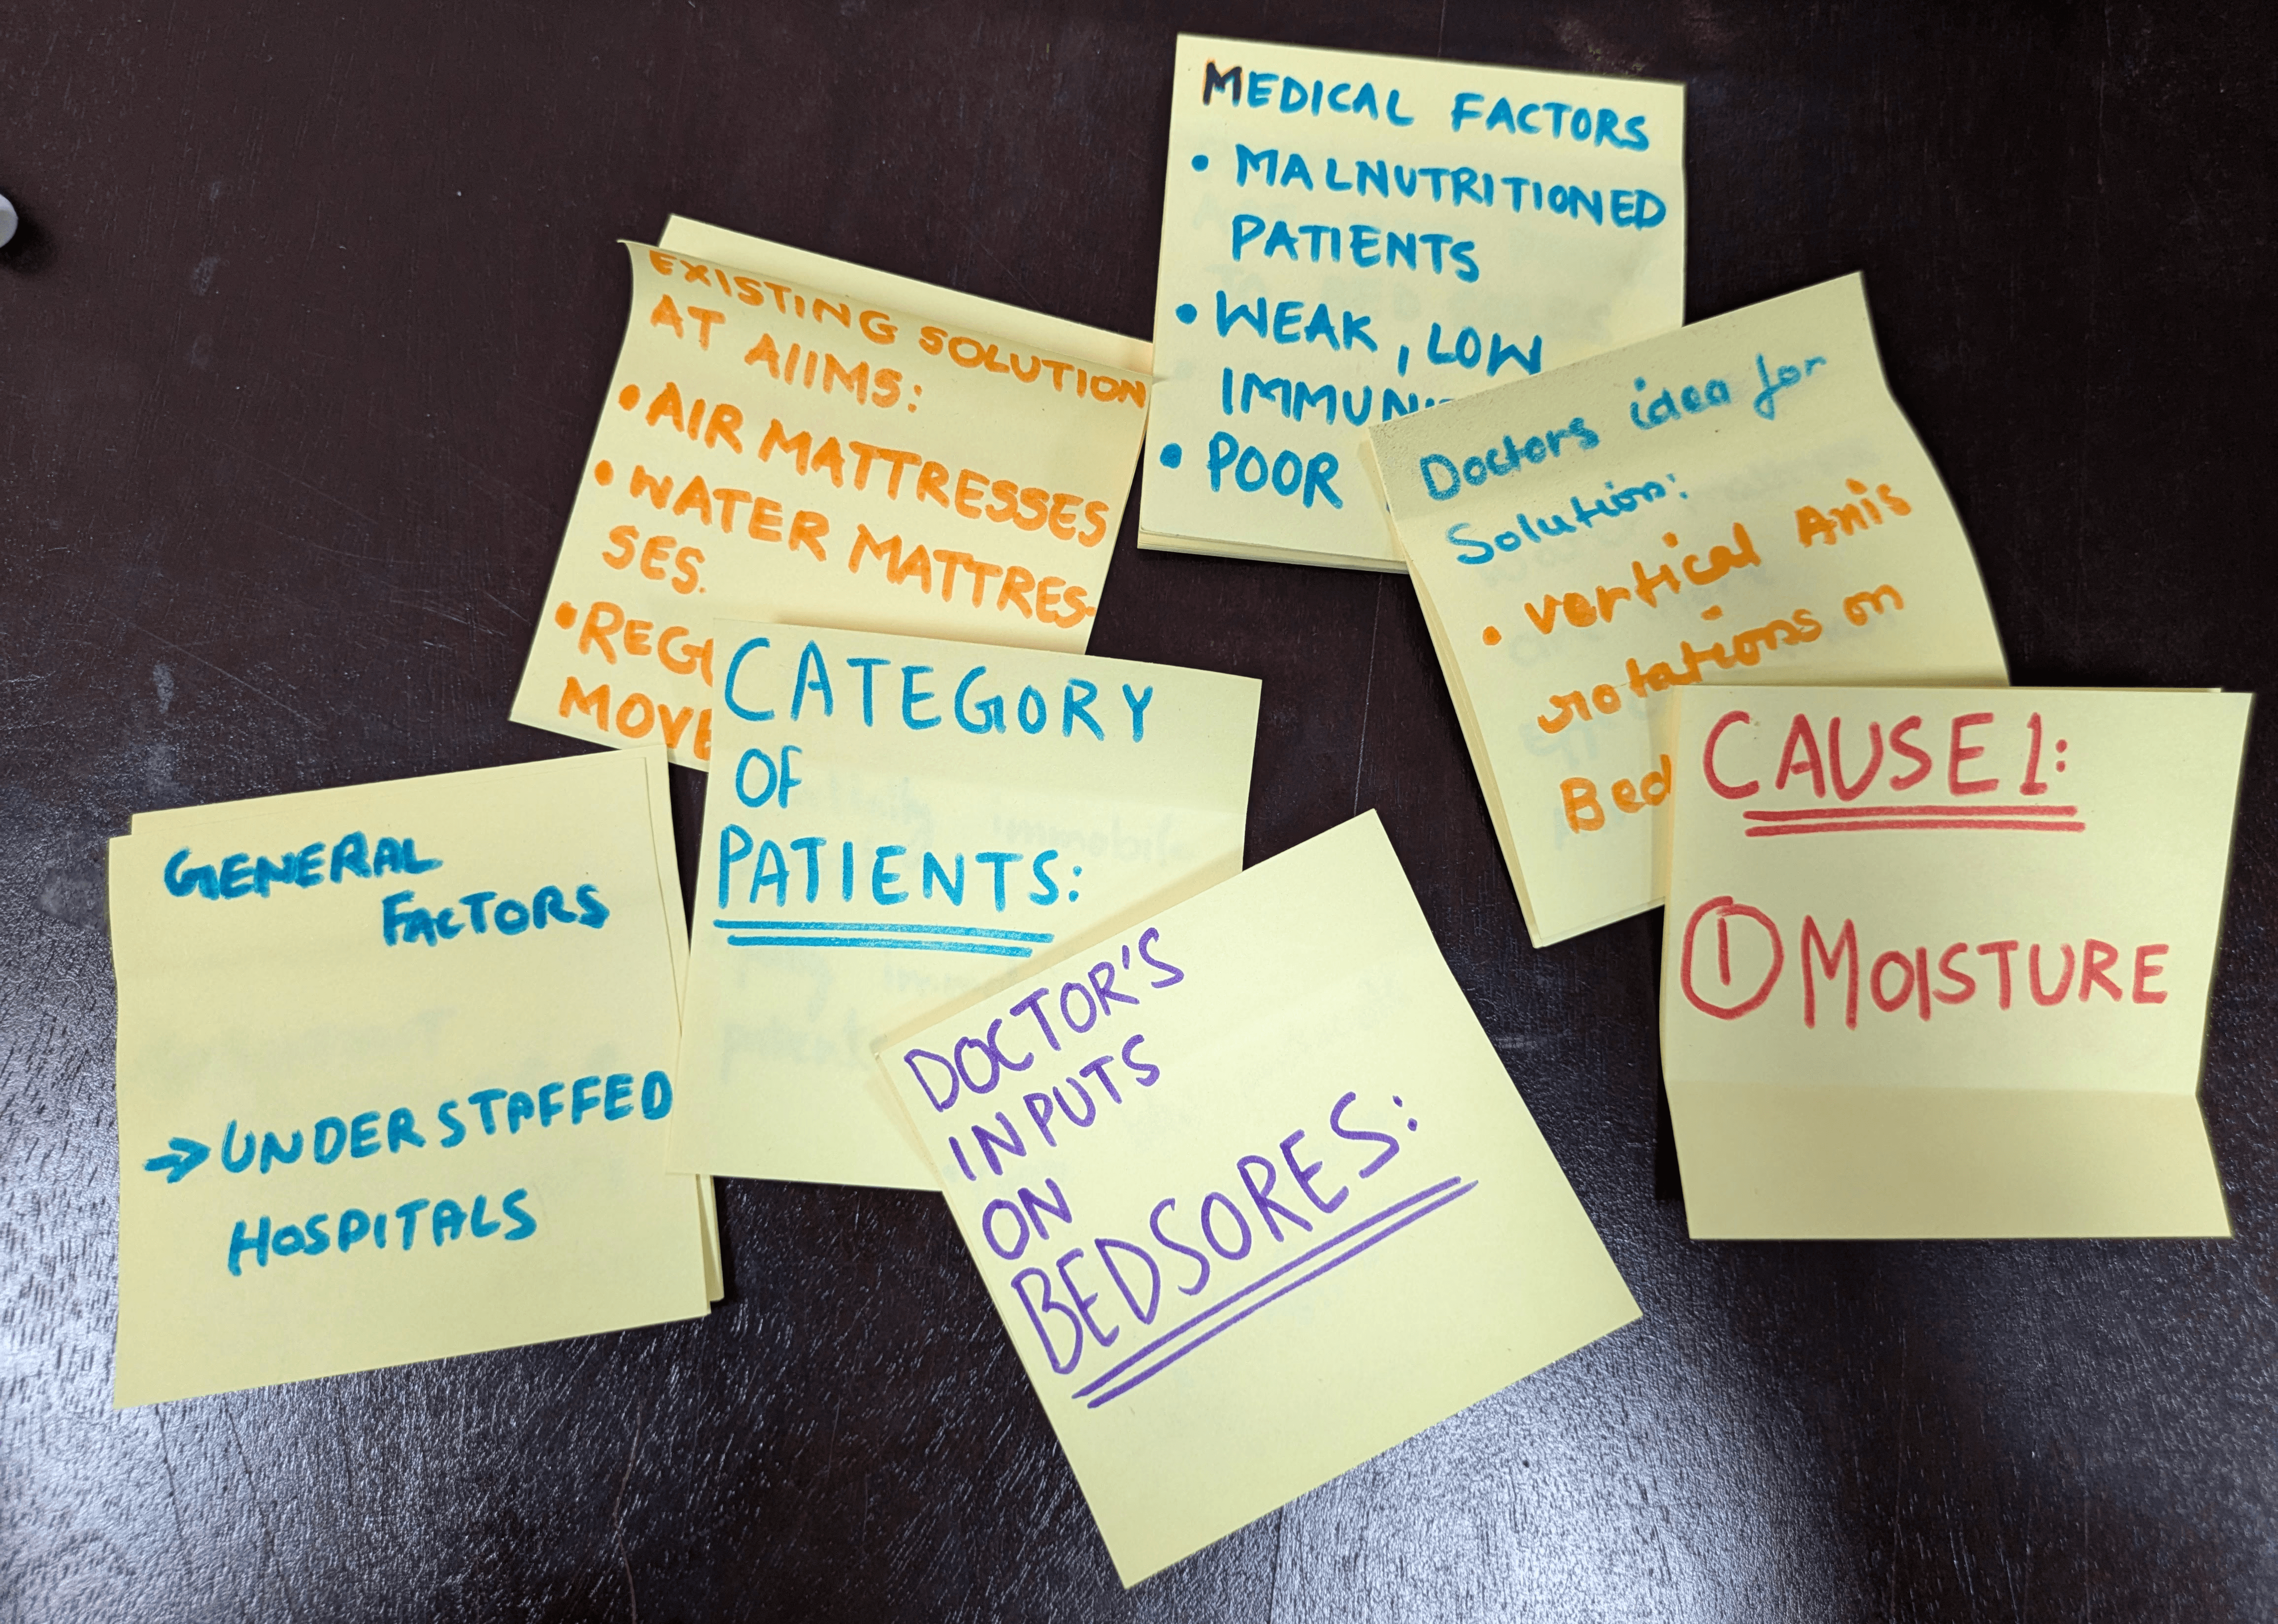 MEDICAL FACTORS
• MALNUTRITIONED
PATIENTS
• WEAK, LOW
• POOR
EXISTING SOLUTION
AT AIIMS:
• AIR MATTRESSES
• WATER MATTRES-
SES.
Doctors idea for
Solution:
• vertical Axis
rotations on
Bed
CATEGORY
OF
PATIENTS:
CAUSE 1:
① MOISTURE
GENERAL
FACTORS
→ UNDERSTAFFED
HOSPITALS
DOCTOR'S
INPUTS
ON
BEDSORES: